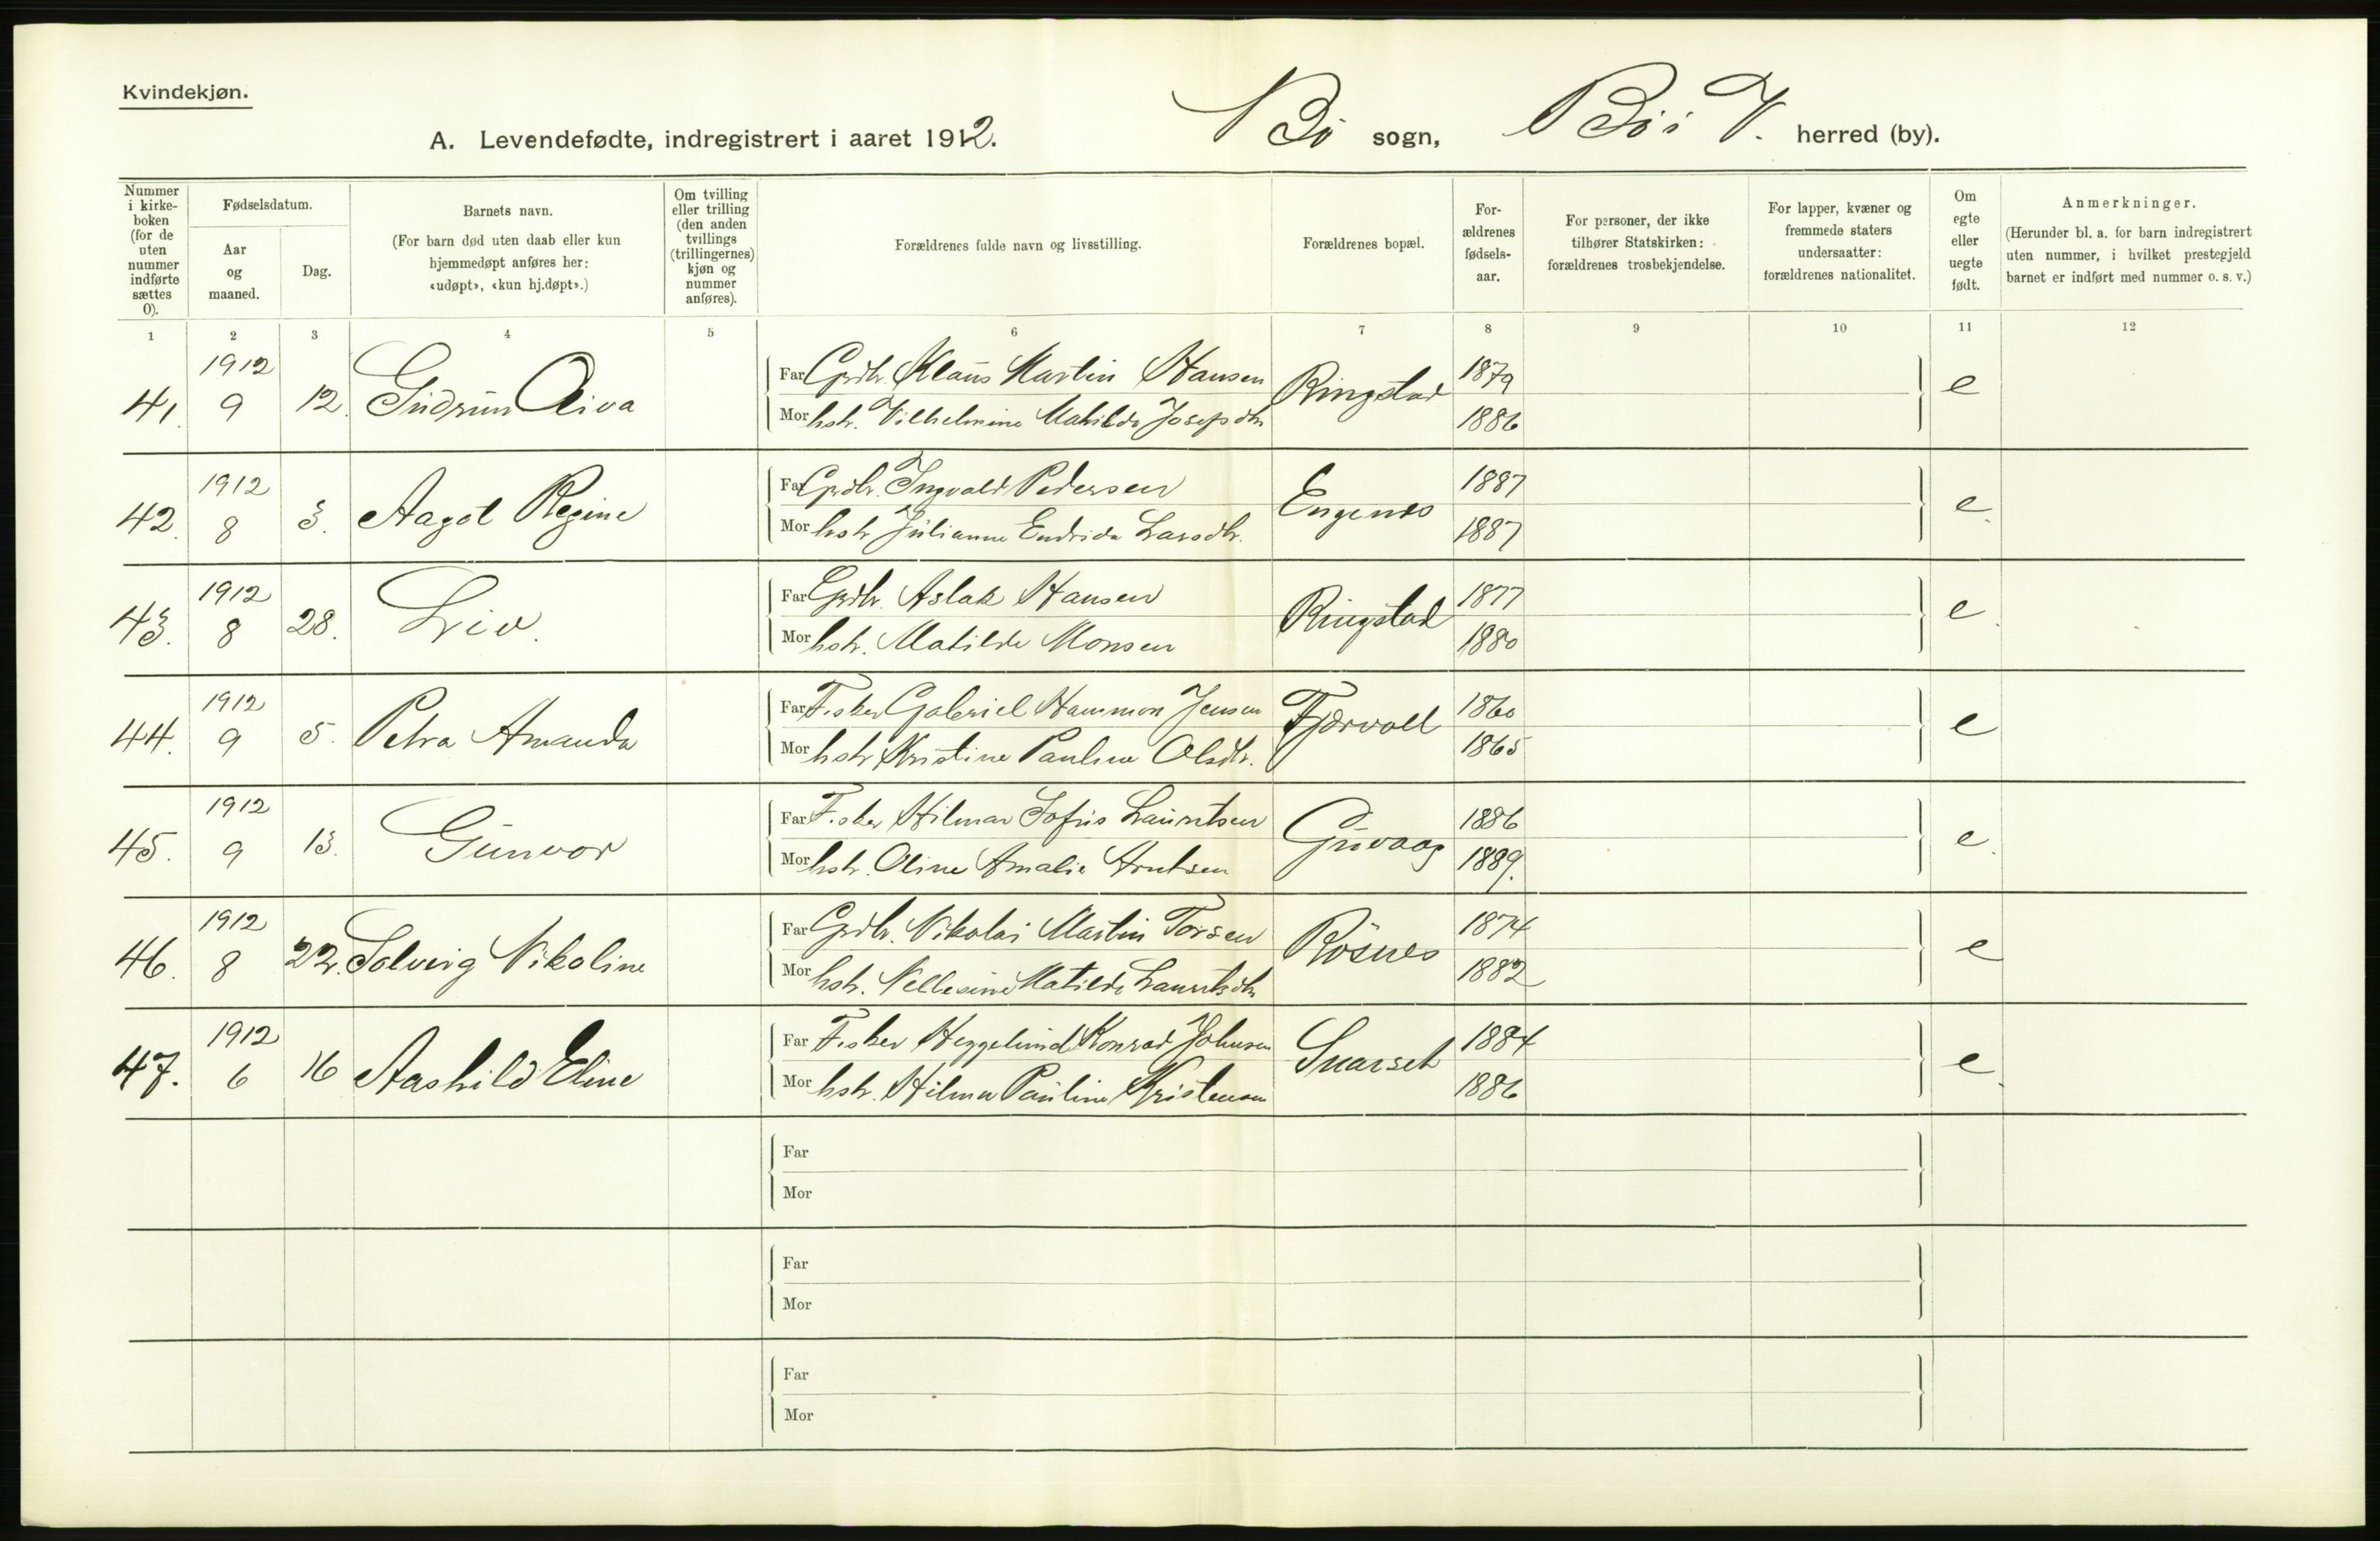 Kvindekjøn.
A. Levendefødte, indregistrert i aaret 1912. Bö sogn, Bö i V. herred (by).
Nummer i kirke-boken (for de uten nummer indførte sættes 0).
Fødselsdatum.
Aar og maaned.
Dag.
Barnets navn.
(For barn død uten daab eller kun hjemmedøpt anføres her: «udøpt», «kun hj.døpt».)
Om tvilling eller trilling (den anden tvillings (trillingernes) kjøn og nummer anføres).
Forældrenes fulde navn og livsstilling.
Forældrenes bopæl.
For-ældrenes fødsels-aar.
For personer, der ikke tilhører Statskirken: forældrenes trosbekjendelse.
For lapper, kvæner og fremmede staters undersaatter: forældrenes nationalitet.
Om egte eller uegte født.
Anmerkninger.
(Herunder bl. a. for barn indregistrert uten nummer, i hvilket prestegjeld barnet er indført med nummer o. s. v.)
1 2 3 4 5 6 7 8 9 10 11 12
41. 1912 9 12. Gudrun Aiva
Far Grdbr. Klaus Martin Hansen Ringstad 1879 e
Mor hstr. Vilhelmine Mathilde Josefsdtr 1886
42. 1912 8 3. Aagot Regine
Far Grdbr. Ingvald Pedersen Engenes 1887 e.
Mor hstr Julianne Endrida Larsdtr. 1887
43. 1912 8 28. Liv.
Far Grdbr. Aslak Hansen Ringstad 1877 e.
Mor hstr. Matilde Monsen 1880
44. 1912 9 5. Petra Amanda
Far Fisker Gabriel Hammon Jensen Fjærvoll 1860 e
Mor hstr Kristine Pauline Olsdtr. 1865
45. 1912 9 13. Gunvor
Far Fisker Hilmar Sofus Lauritsen Guvaag 1886 e.
Mor hstr. Oline Amalie Arntsen 1889.
46. 1912 8 22. Solveig Nikoline
Far Grdbr. Nikolai Martin Torsen Rösnes 1874 e
Mor hstr. Matilde Lauritsdtr 1882
47. 1912 6 16 Aashild Eline
Far Fisker Heggelund Konrad Johnsen Snarset 1884 e.
Mor hstr. Hilma Pauline Kristensen 1886
Far
Mor
Far
Mor
Far
Mor